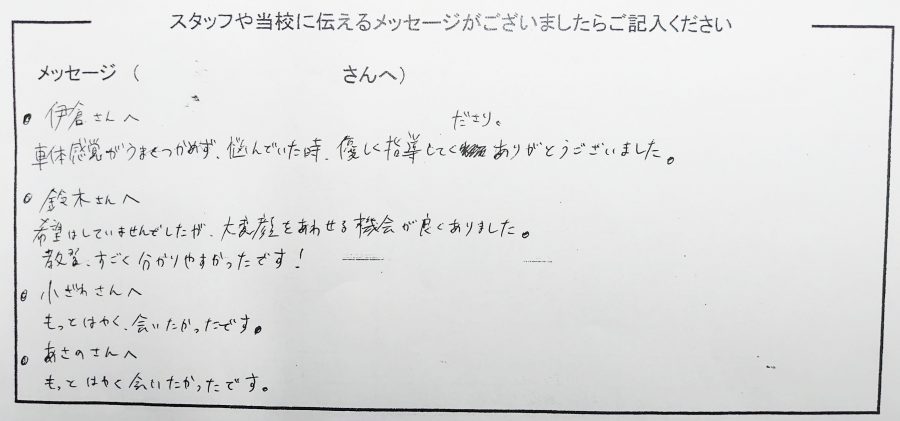 スタッフや当校に伝えるメッセージがございましたらご記入ください
メッセージ（　　　　　　　　さんへ）
・伊倉さんへ
車体感覚がうまくつかめず、悩んでいた時、優しく指導してくださり、ありがとうございました。
・鈴木さんへ
希望はしていませんでしたが、大変顔をあわせる機会が良くありました。
教習、すごく分かりやすかったです！
・小ざわさんへ
もっとはやく、会いたかったです。
・あさのさんへ
もっとはやく会いたかったです。